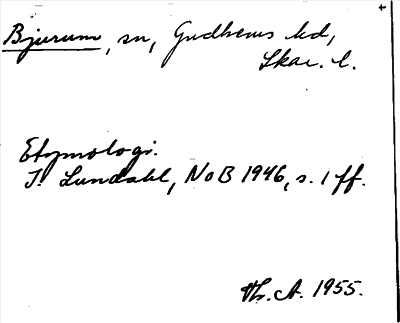 Bjurum, sn, Gudhems hd,
Skar. l.
Etymologi.
I. Lundahl, NoB 1946, s. 1 ff.
Th. A. 1955.